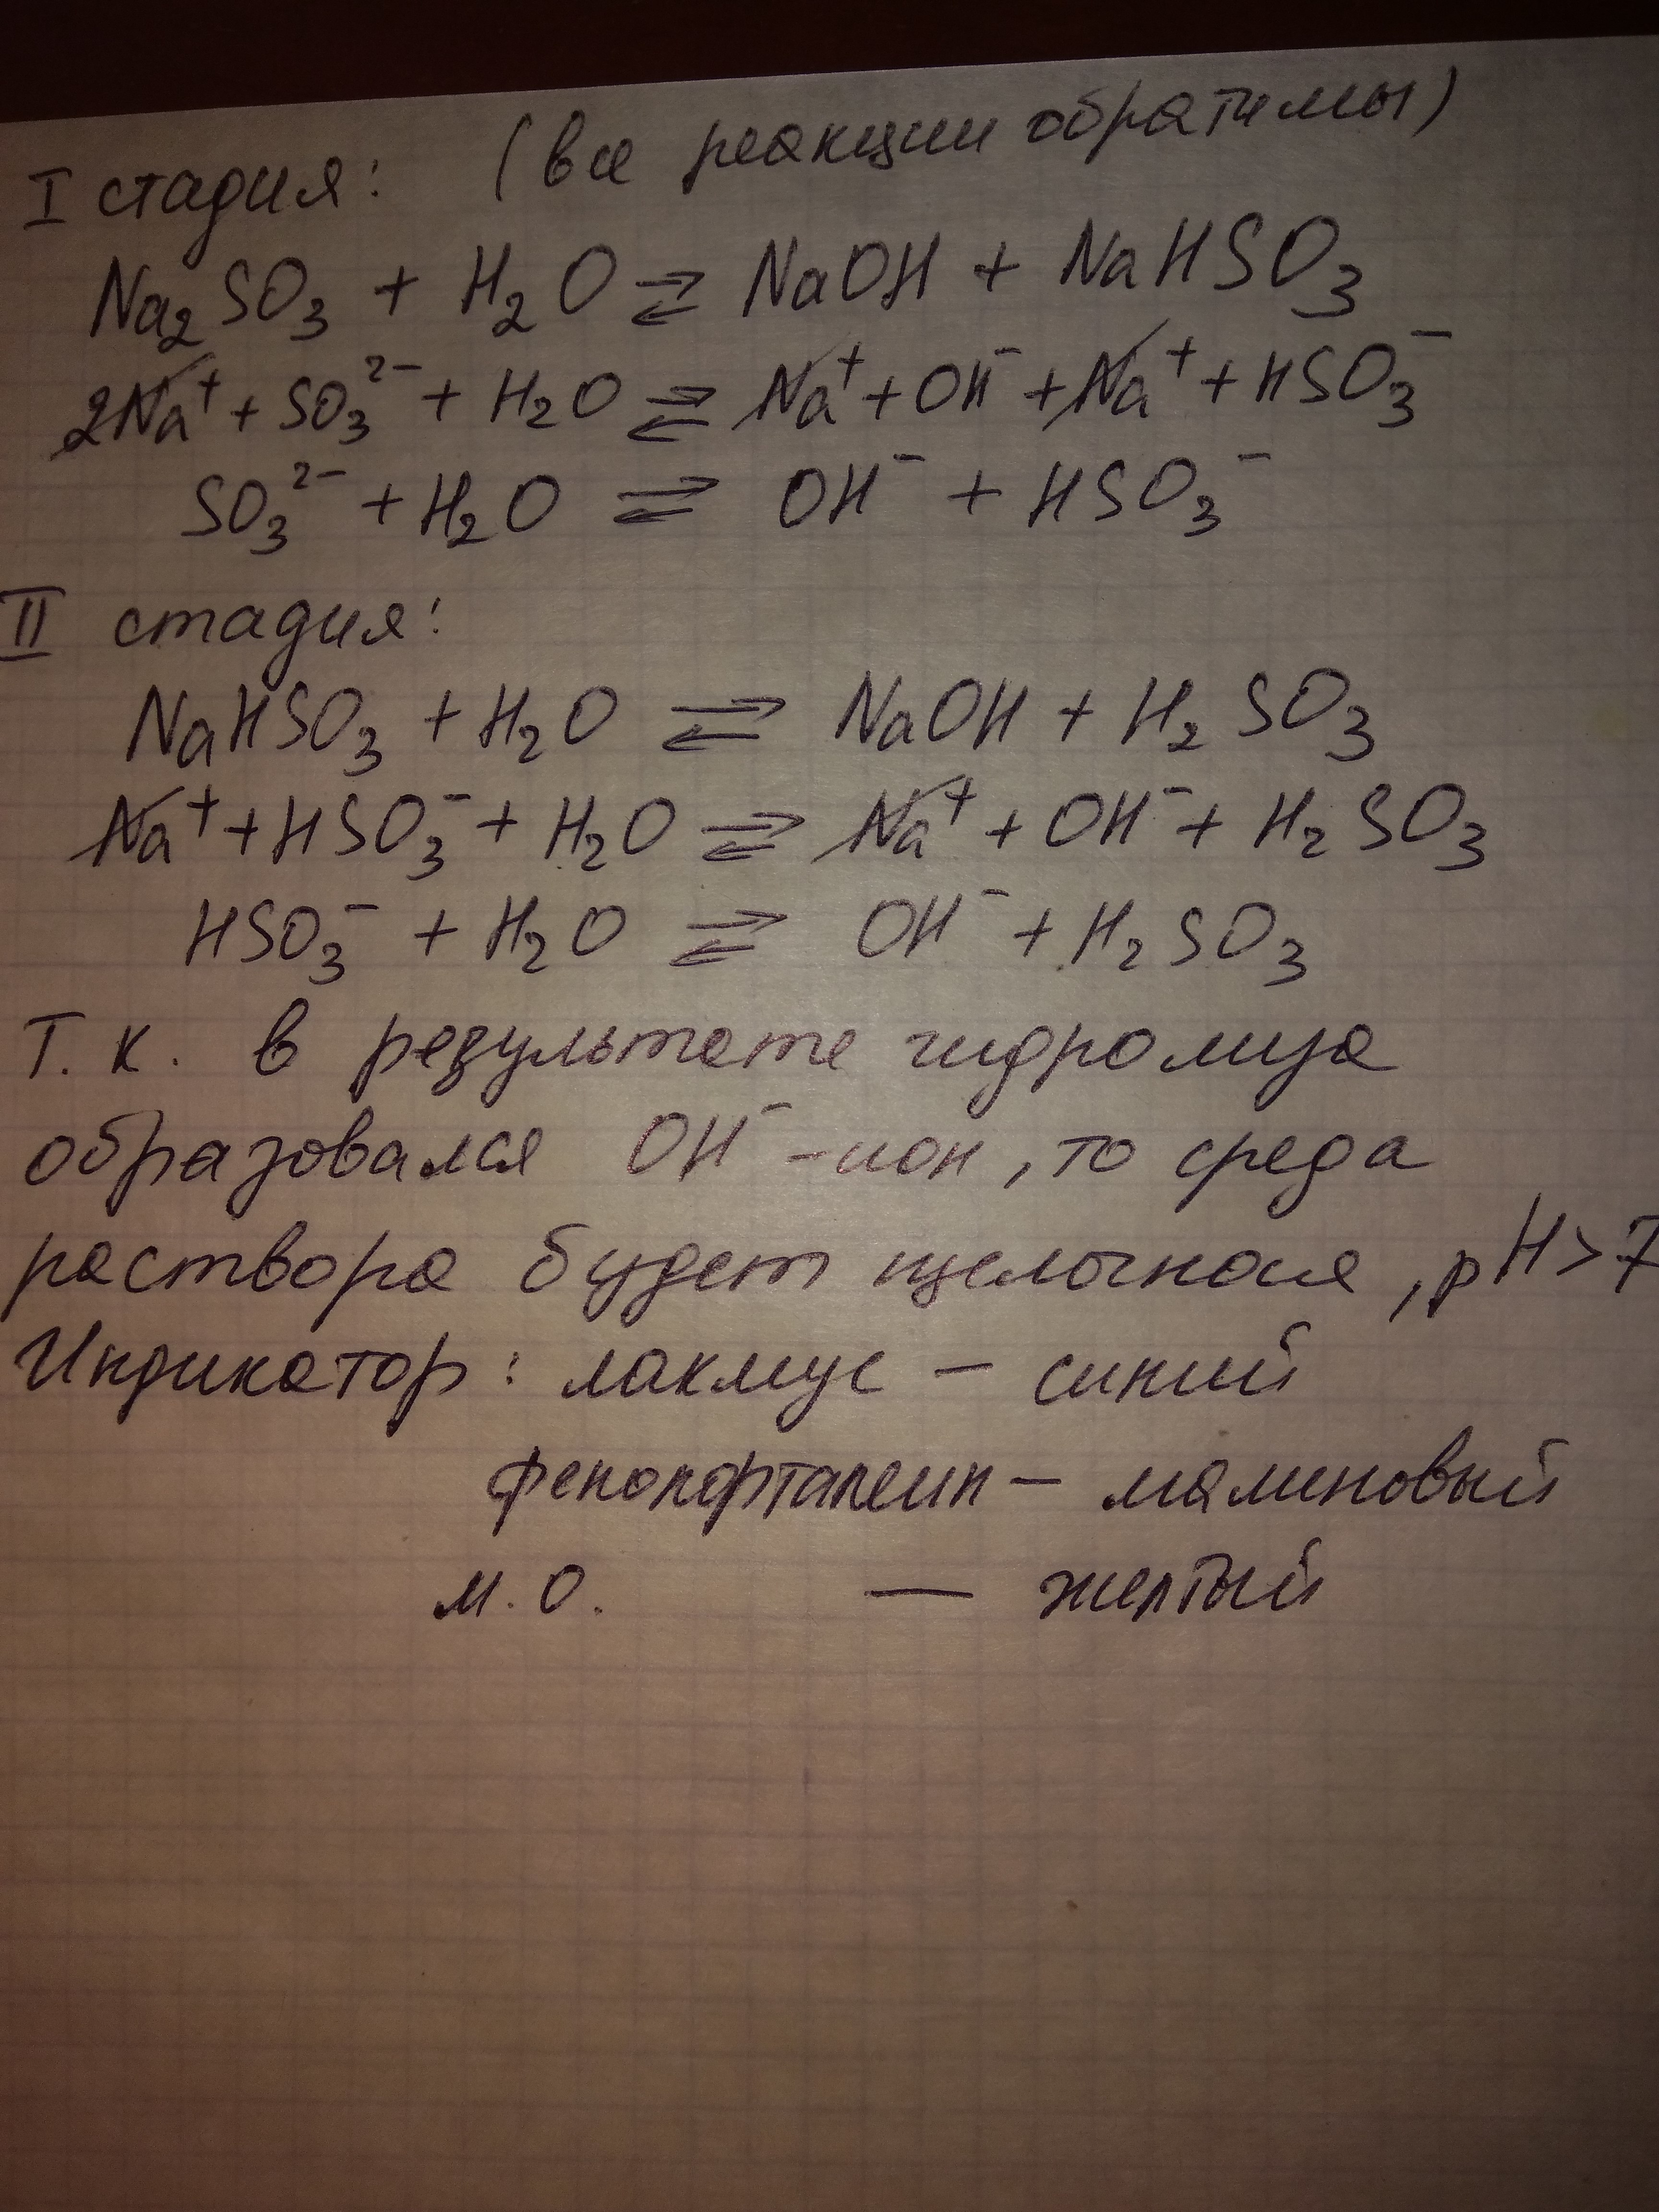 I стадия: (все реакции обратимы)
Na₂SO₃ + H₂O ⇌ NaOH + NaHSO₃
2Na⁺ + SO₃²⁻ + H₂O ⇌ Na⁺ + OH⁻ + Na⁺ + HSO₃⁻
SO₃²⁻ + H₂O ⇌ OH⁻ + HSO₃⁻
II стадия:
NaHSO₃ + H₂O ⇌ NaOH + H₂SO₃
Na⁺ + HSO₃⁻ + H₂O ⇌ Na⁺ + OH⁻ + H₂SO₃
HSO₃⁻ + H₂O ⇌ OH⁻ + H₂SO₃
Т. к. в результате гидролиза
образовался OH⁻ - ион, то среда
раствора будет щелочная, pH > 7
Индикатор: лакмус – синий
фенолфталеин – малиновый
м. о. — желтый